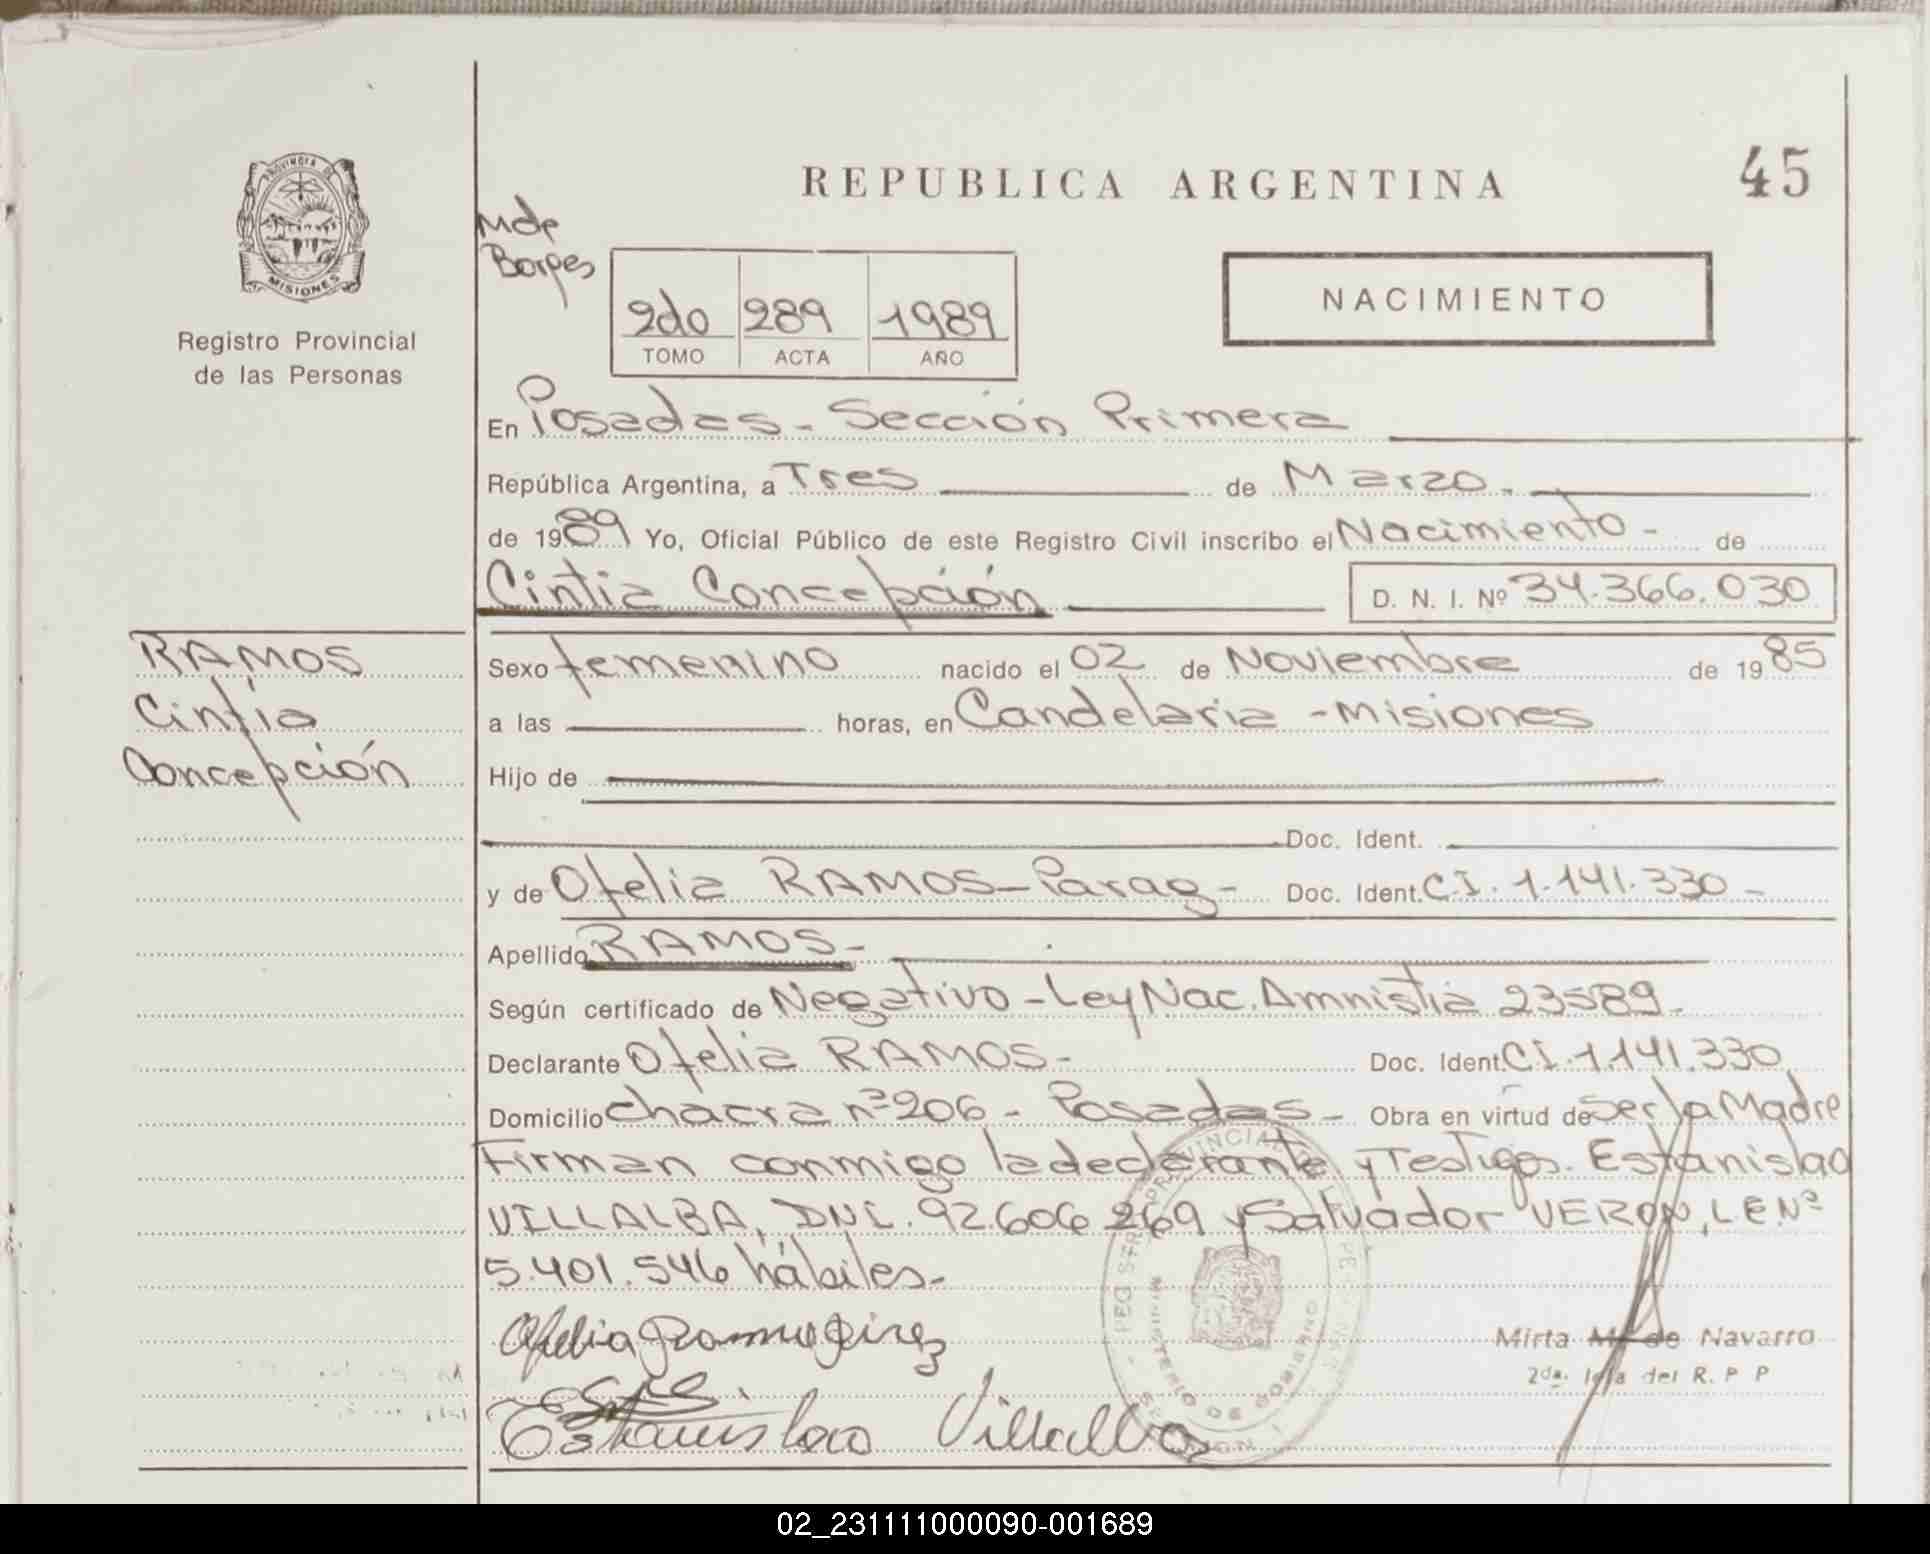 REPUBLICA ARGENTINA
45
PROVINCIA DE
MISIONES
Registro Provincial
de las Personas
Mde
Borges
2do 289 1989
TOMO ACTA AÑO
NACIMIENTO
En Posadas - Sección Primera
República Argentina, a Tres de Marzo.
de 1989 Yo, Oficial Público de este Registro Civil inscribo el Nacimiento - de
Cintia Concepción D. N. I. Nº 34.366.030
RAMOS
Cintia
Concepción
Sexo femenino nacido el 02 de Noviembre de 1985
a las horas, en Candelaria - Misiones
Hijo de
Doc. Ident.
y de Ofelia RAMOS - Parag - Doc. Ident. C.I. 1.141.330 -
Apellido RAMOS -
Según certificado de Negativo - Ley Nac. Amnistia 23589 -
Declarante Ofelia RAMOS - Doc. Ident. C.I. 1.141.330
Domicilio chacra nº 206 - Posadas - Obra en virtud de Ser la Madre
Firman conmigo la declarante y Testigos. Estanislao
VILLALBA, DNI. 92.606 269 y Salvador VERON, L.E. Nº
5.401.546 hábiles -
Ofelia Ramos
Mirta M. de Navarro
2da. Jefa del R. P P
Estanislao Villalba
MINISTERIO DE GOBIERNO
02_231111000090-001689